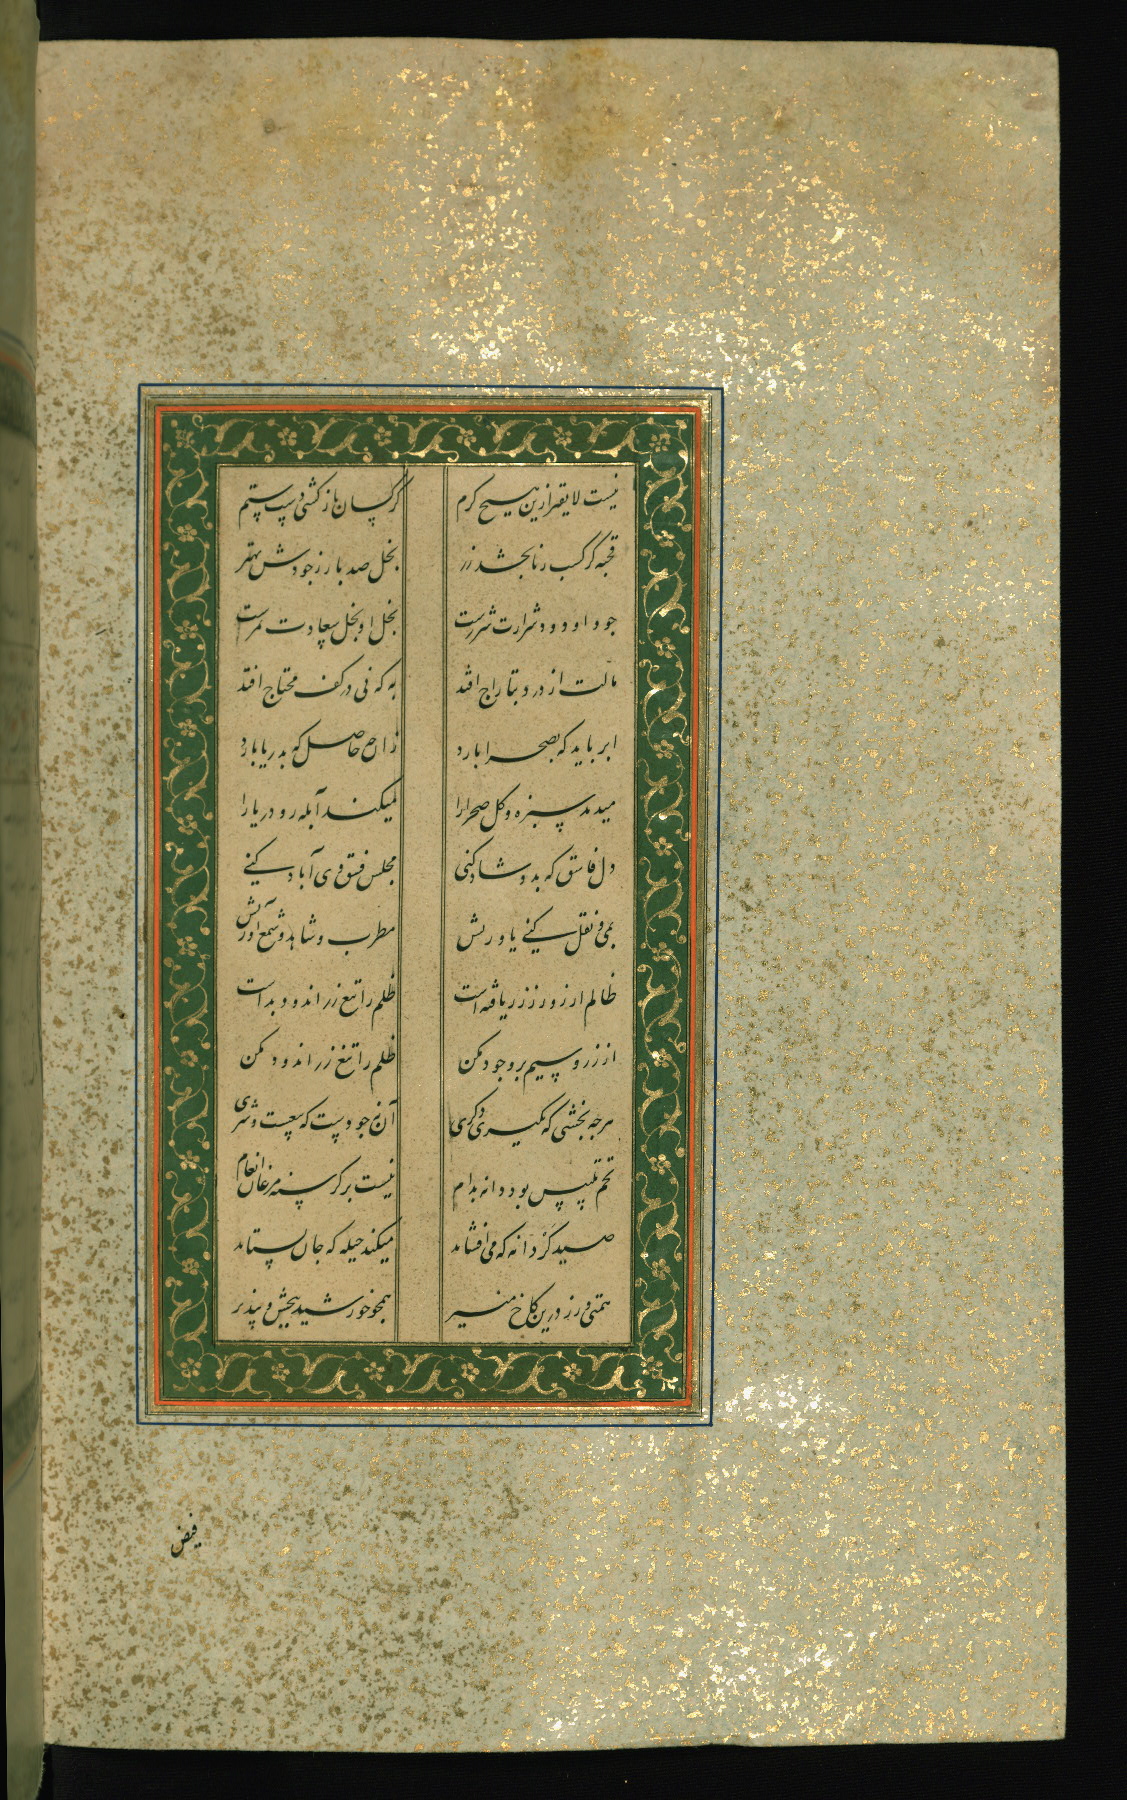 نیست لایق‌تر ازین هیچ کرم کز کسان بازکشی دست ستم
قحبه کز کسب زنا بخشد زر بخل صد بار ز جودش بهتر
جود او دود شرارت شررست بخل او بخل سعادت ثمرست
مالت از دزد بتاراج افتد به که نی در کف محتاج افتد
ابر باید که بصحرا بارد زان چه حاصل که بدریا بارد
میدمد سبزه و کل صحرا را میکند آبله رو دریا را
دل فاسق که بدو شاد کنی مجلس فسق وی آباد کنی
بمی و نقل کنی یاوریش مطرب و شاهد و شمع آوریش
ظالم از زور ز زر یافته است ظلم را تیغ زر اندود بداست
از زر و سیم برو جود مکن ظلم را تیغ زر اندود مکن
هرچه بخشی که بگیری دگری آن نه جودست که بیعست و شری
تخم تلبیس بود دانه بدام نیست بر گرسنه مرغان انعام
صیدگر دانه که می‌افشاند میکند حیله که جان بستاند
همتی ورز درین کاخ منیر همچو خورشید ببخش و مپذیر
فیض